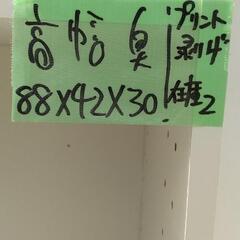 高 幅 奥
88×42×30
プリント
剥げ
在庫2